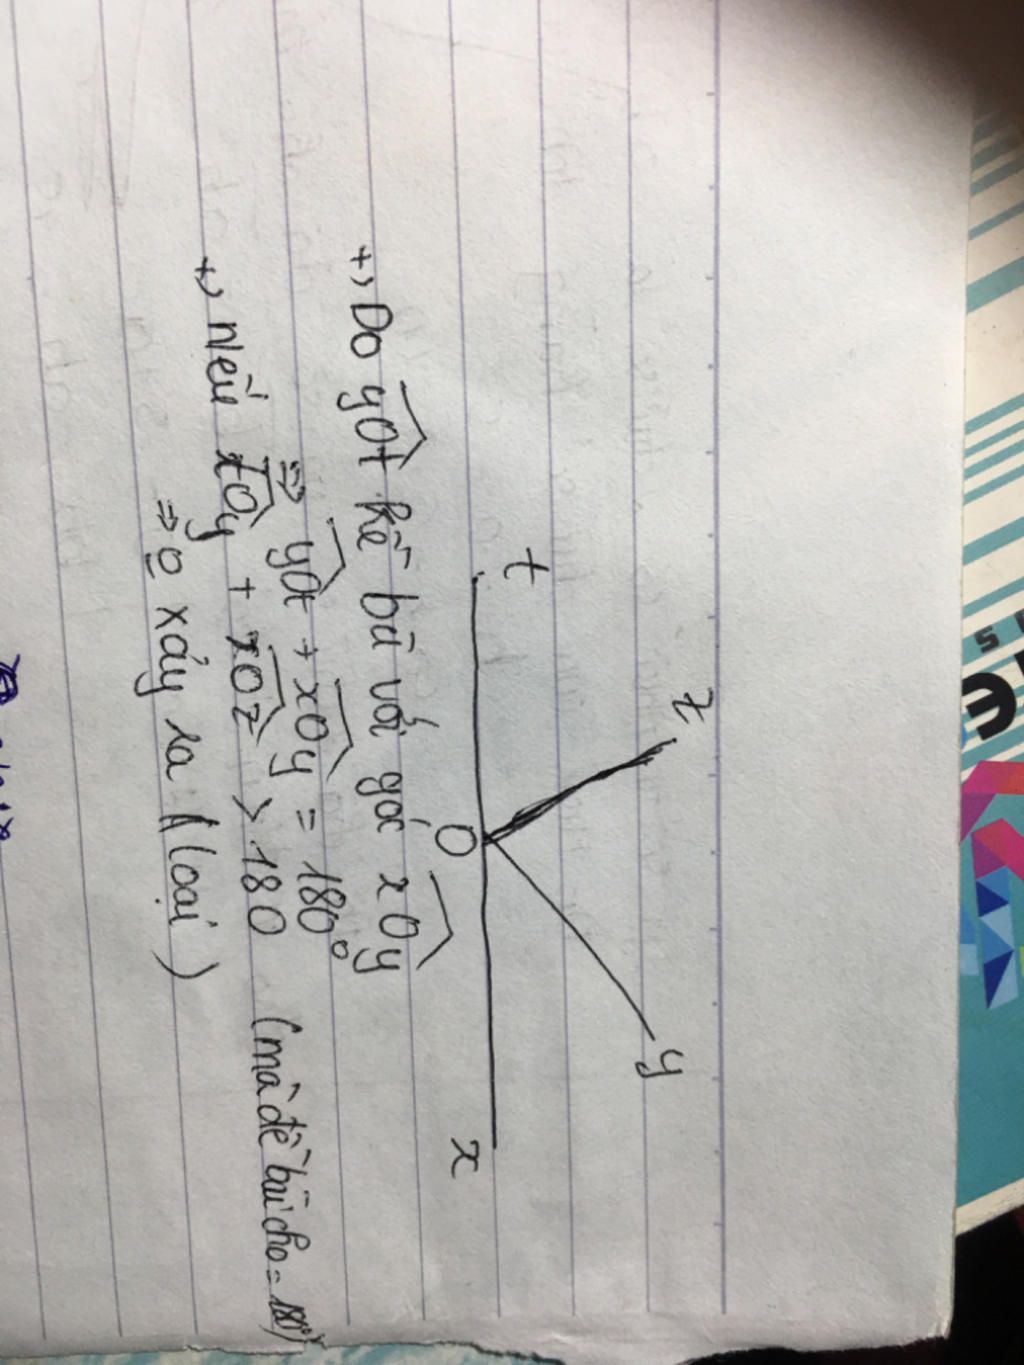 t
z
y
O
x
+, Do yOt kề bù với góc xOy
⇒ yOt + xOy = 180°
+, Nếu xOy + xOz > 180 (mà đề bài cho = 180°)
⇒ o xảy ra (loại)